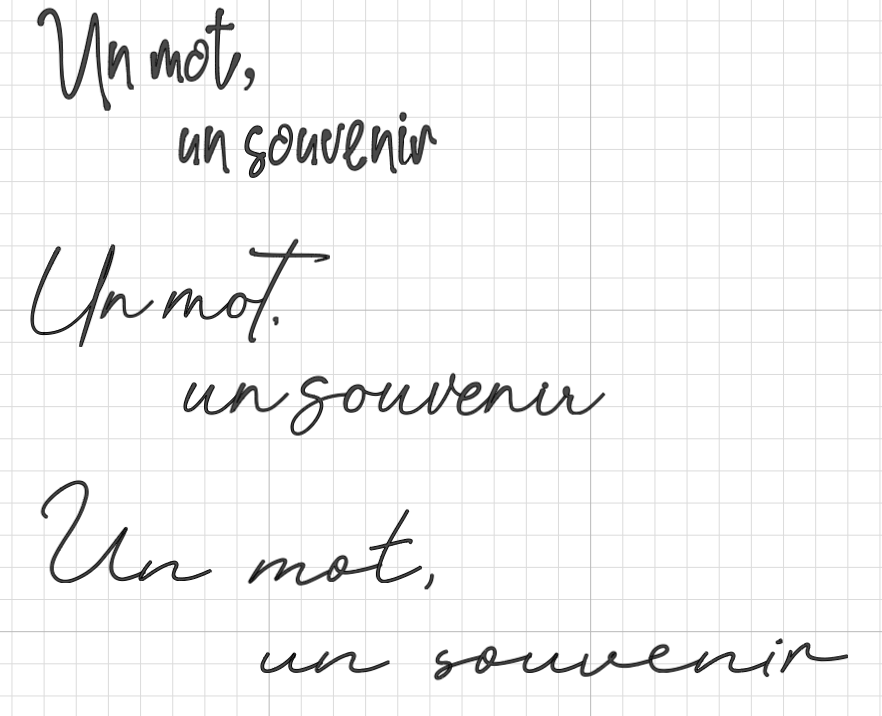 Un mot,
un souvenir
Un mot.
un souvenir
Un mot,
un souvenir